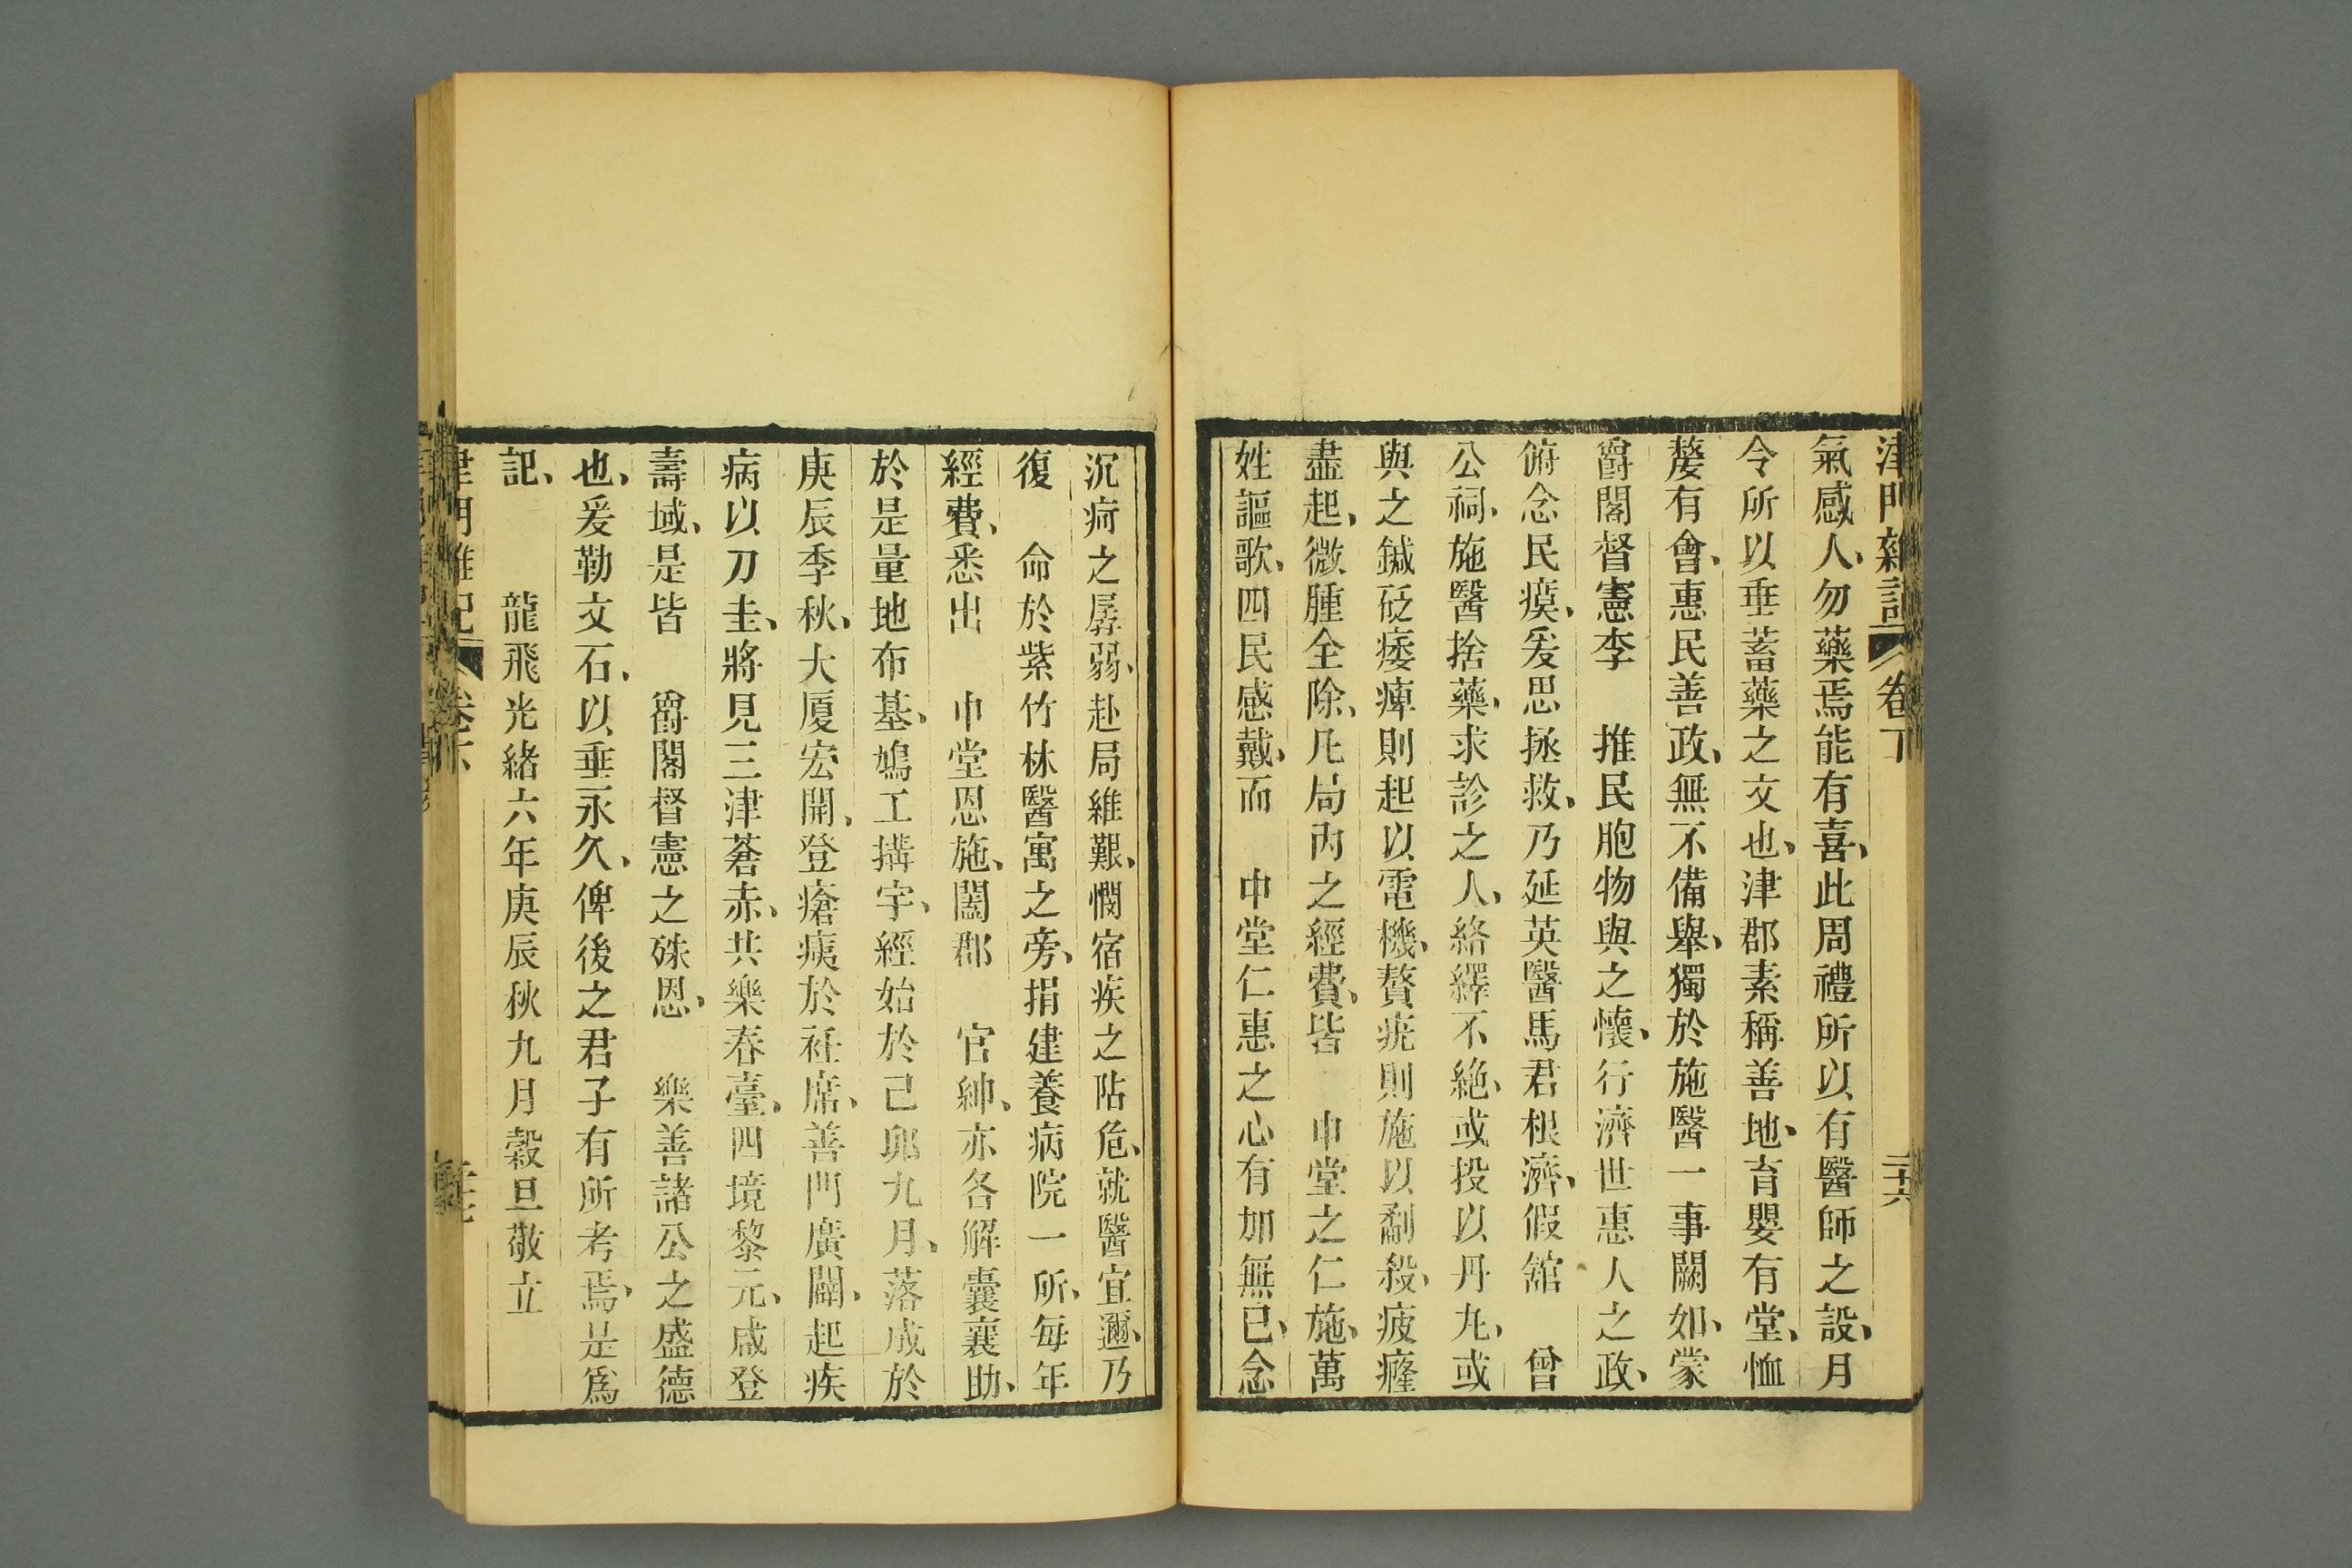 津門雜記 卷下 二十六
氣感人、勿藥焉能有喜、此周禮所以有醫師之設、月
令所以垂蓄藥之文也、津郡素稱善地、育嬰有堂、恤
嫠有會、惠民善政、無不備舉、獨於施醫一事闕如、蒙
爵閣督憲李　推民胞物與之懷、行濟世惠人之政、
俯念民瘼、爰思拯救、乃延英醫馬君根濟、假舘　曾
公祠、施醫捨藥、求診之人、絡繹不絶、或投以丹丸、或
與之鍼砭痿痺則起以電機、贅疣則施以劀殺、疲癃
盡起、微腫全除、凡局內之經費、皆　中堂之仁施、萬
姓謳歌、四民感戴、而　中堂仁惠之心有加無已、念
沉疴之孱弱、赴局維艱、憫宿疾之阽危、就醫宜邇、乃
復　命於紫竹林醫寓之旁、捐建養病院一所、每年
經費、悉出　中堂恩施、闔郡　官紳、亦各解囊襄助、
於是量地布基、鳩工搆宇、經始於己夘九月、落成於
庚辰季秋、大厦宏開、登瘡痍於衽席、善門廣闢、起疾
病以刀圭、將見三津蒼赤、共樂春臺、四境黎元、咸登
壽域、是皆　爵閣督憲之殊恩、　樂善諸公之盛德
也、爰勒文石、以垂永久、俾後之君子有所考焉、是爲
記、　龍飛光緒六年庚辰秋九月穀旦敬立
津門雜記 卷下